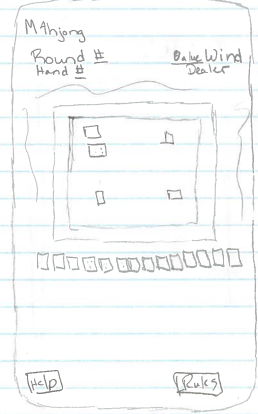 Mahjong
Round # Value Wind
Hand # Dealer
Help Rules